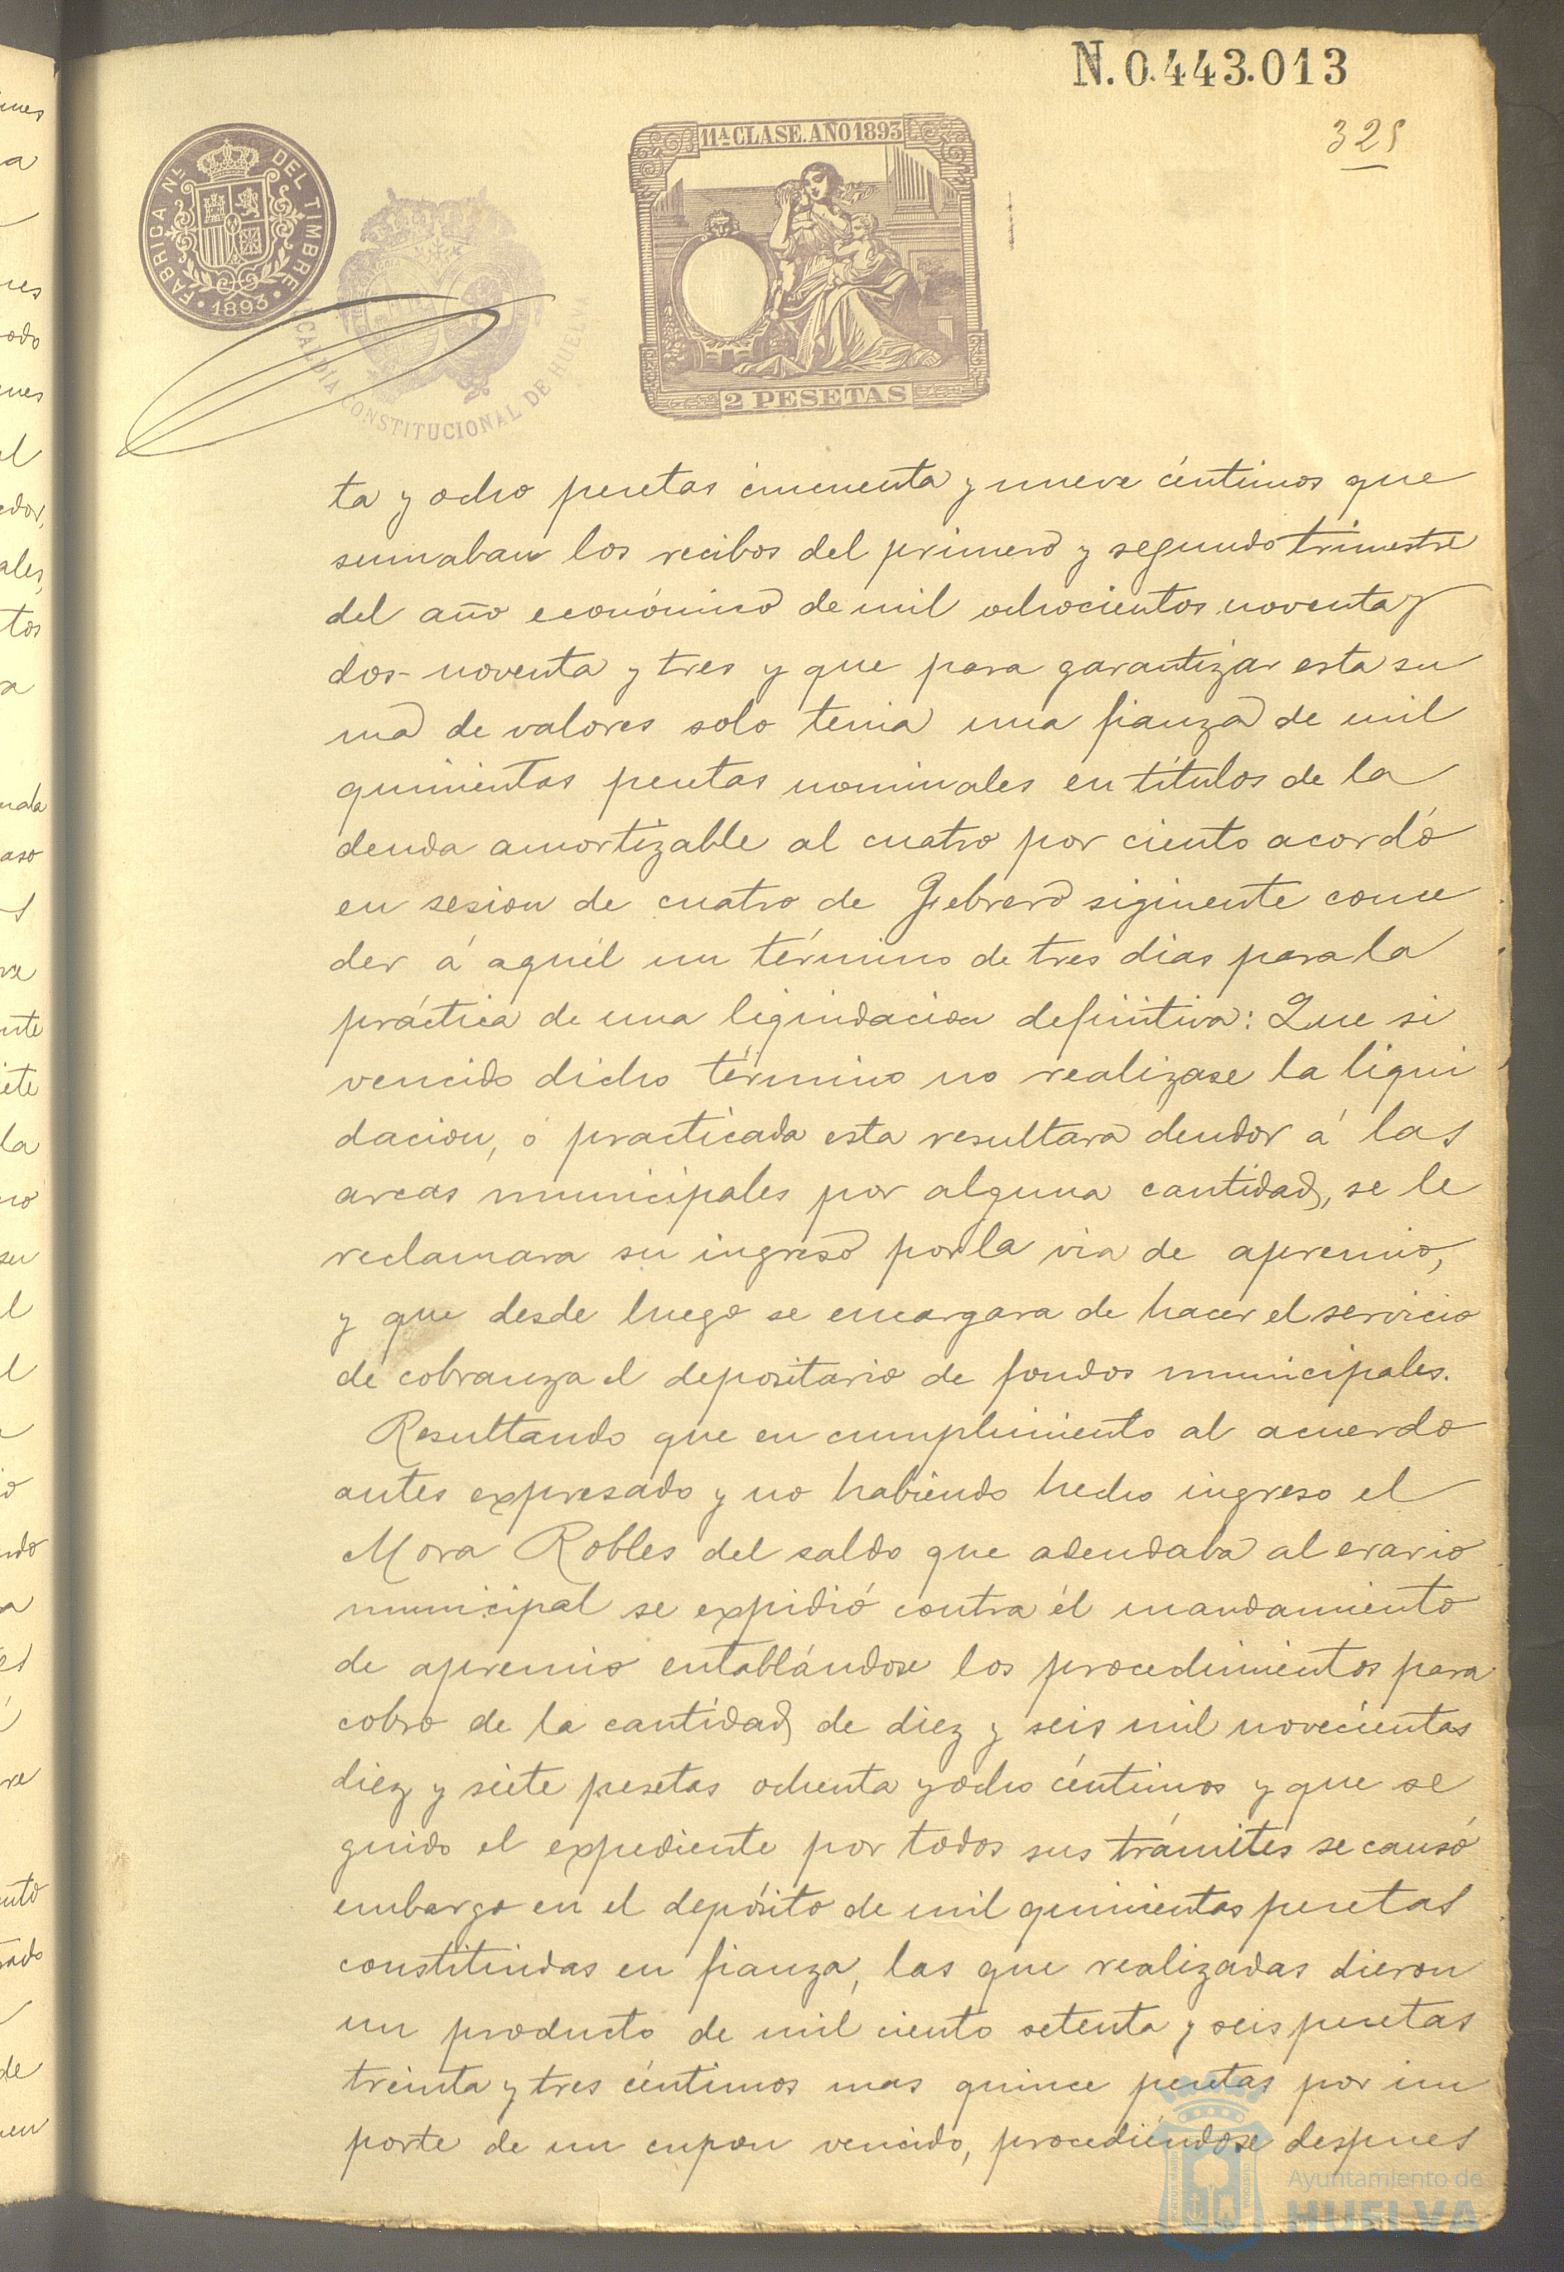 N.0.443.013
325
FABRICA NL DEL TIMBRE
1893
ALCALDIA CONSTITUCIONAL DE HUELVA
11ª CLASE. AÑO 1893
2 PESETAS
ta y ocho pesetas cincuenta y nueve céntimos que
sumaban los recibos del primero y segundo trimestre
del año económico de mil ochocientos noventa y
dos-noventa y tres y que para garantizar esta su
ma de valores solo tenia una fianza de mil
quinientas pesetas nominales en títulos de la
deuda amortizable al cuatro por ciento acordó
en sesion de cuatro de Febrero siguiente conce
der á aquél un término de tres dias para la
práctica de una liquidacion definitiva: Que si
vencido dicho término no realizase la liqui
dacion, o practicada esta resultara deudor á las
arcas municipales por alguna cantidad, se le
reclamara su ingreso por la via de apremio,
y que desde luego se encargara de hacer el servicio
de cobranza el depositario de fondos municipales.
Resultando que en cumplimiento al acuerdo
antes expresado y no habiendo hecho ingreso el
Mora Robles del saldo que adeudaba al erario
municipal se expidió contra él mandamiento
de apremio entablándose los procedimientos para
cobro de la cantidad de diez y seis mil novecientas
diez y siete pesetas ochenta y ocho céntimos y que se
guido el expediente por todos sus trámites se causó
embargo en el depósito de mil quinientas pesetas
constituidas en fianza, las que realizadas dieron
un producto de mil ciento setenta y seis pesetas
treinta y tres céntimos mas quince pesetas por im
porte de un cupon vencido, procediéndose despues
Ayuntamiento de
HUELVA